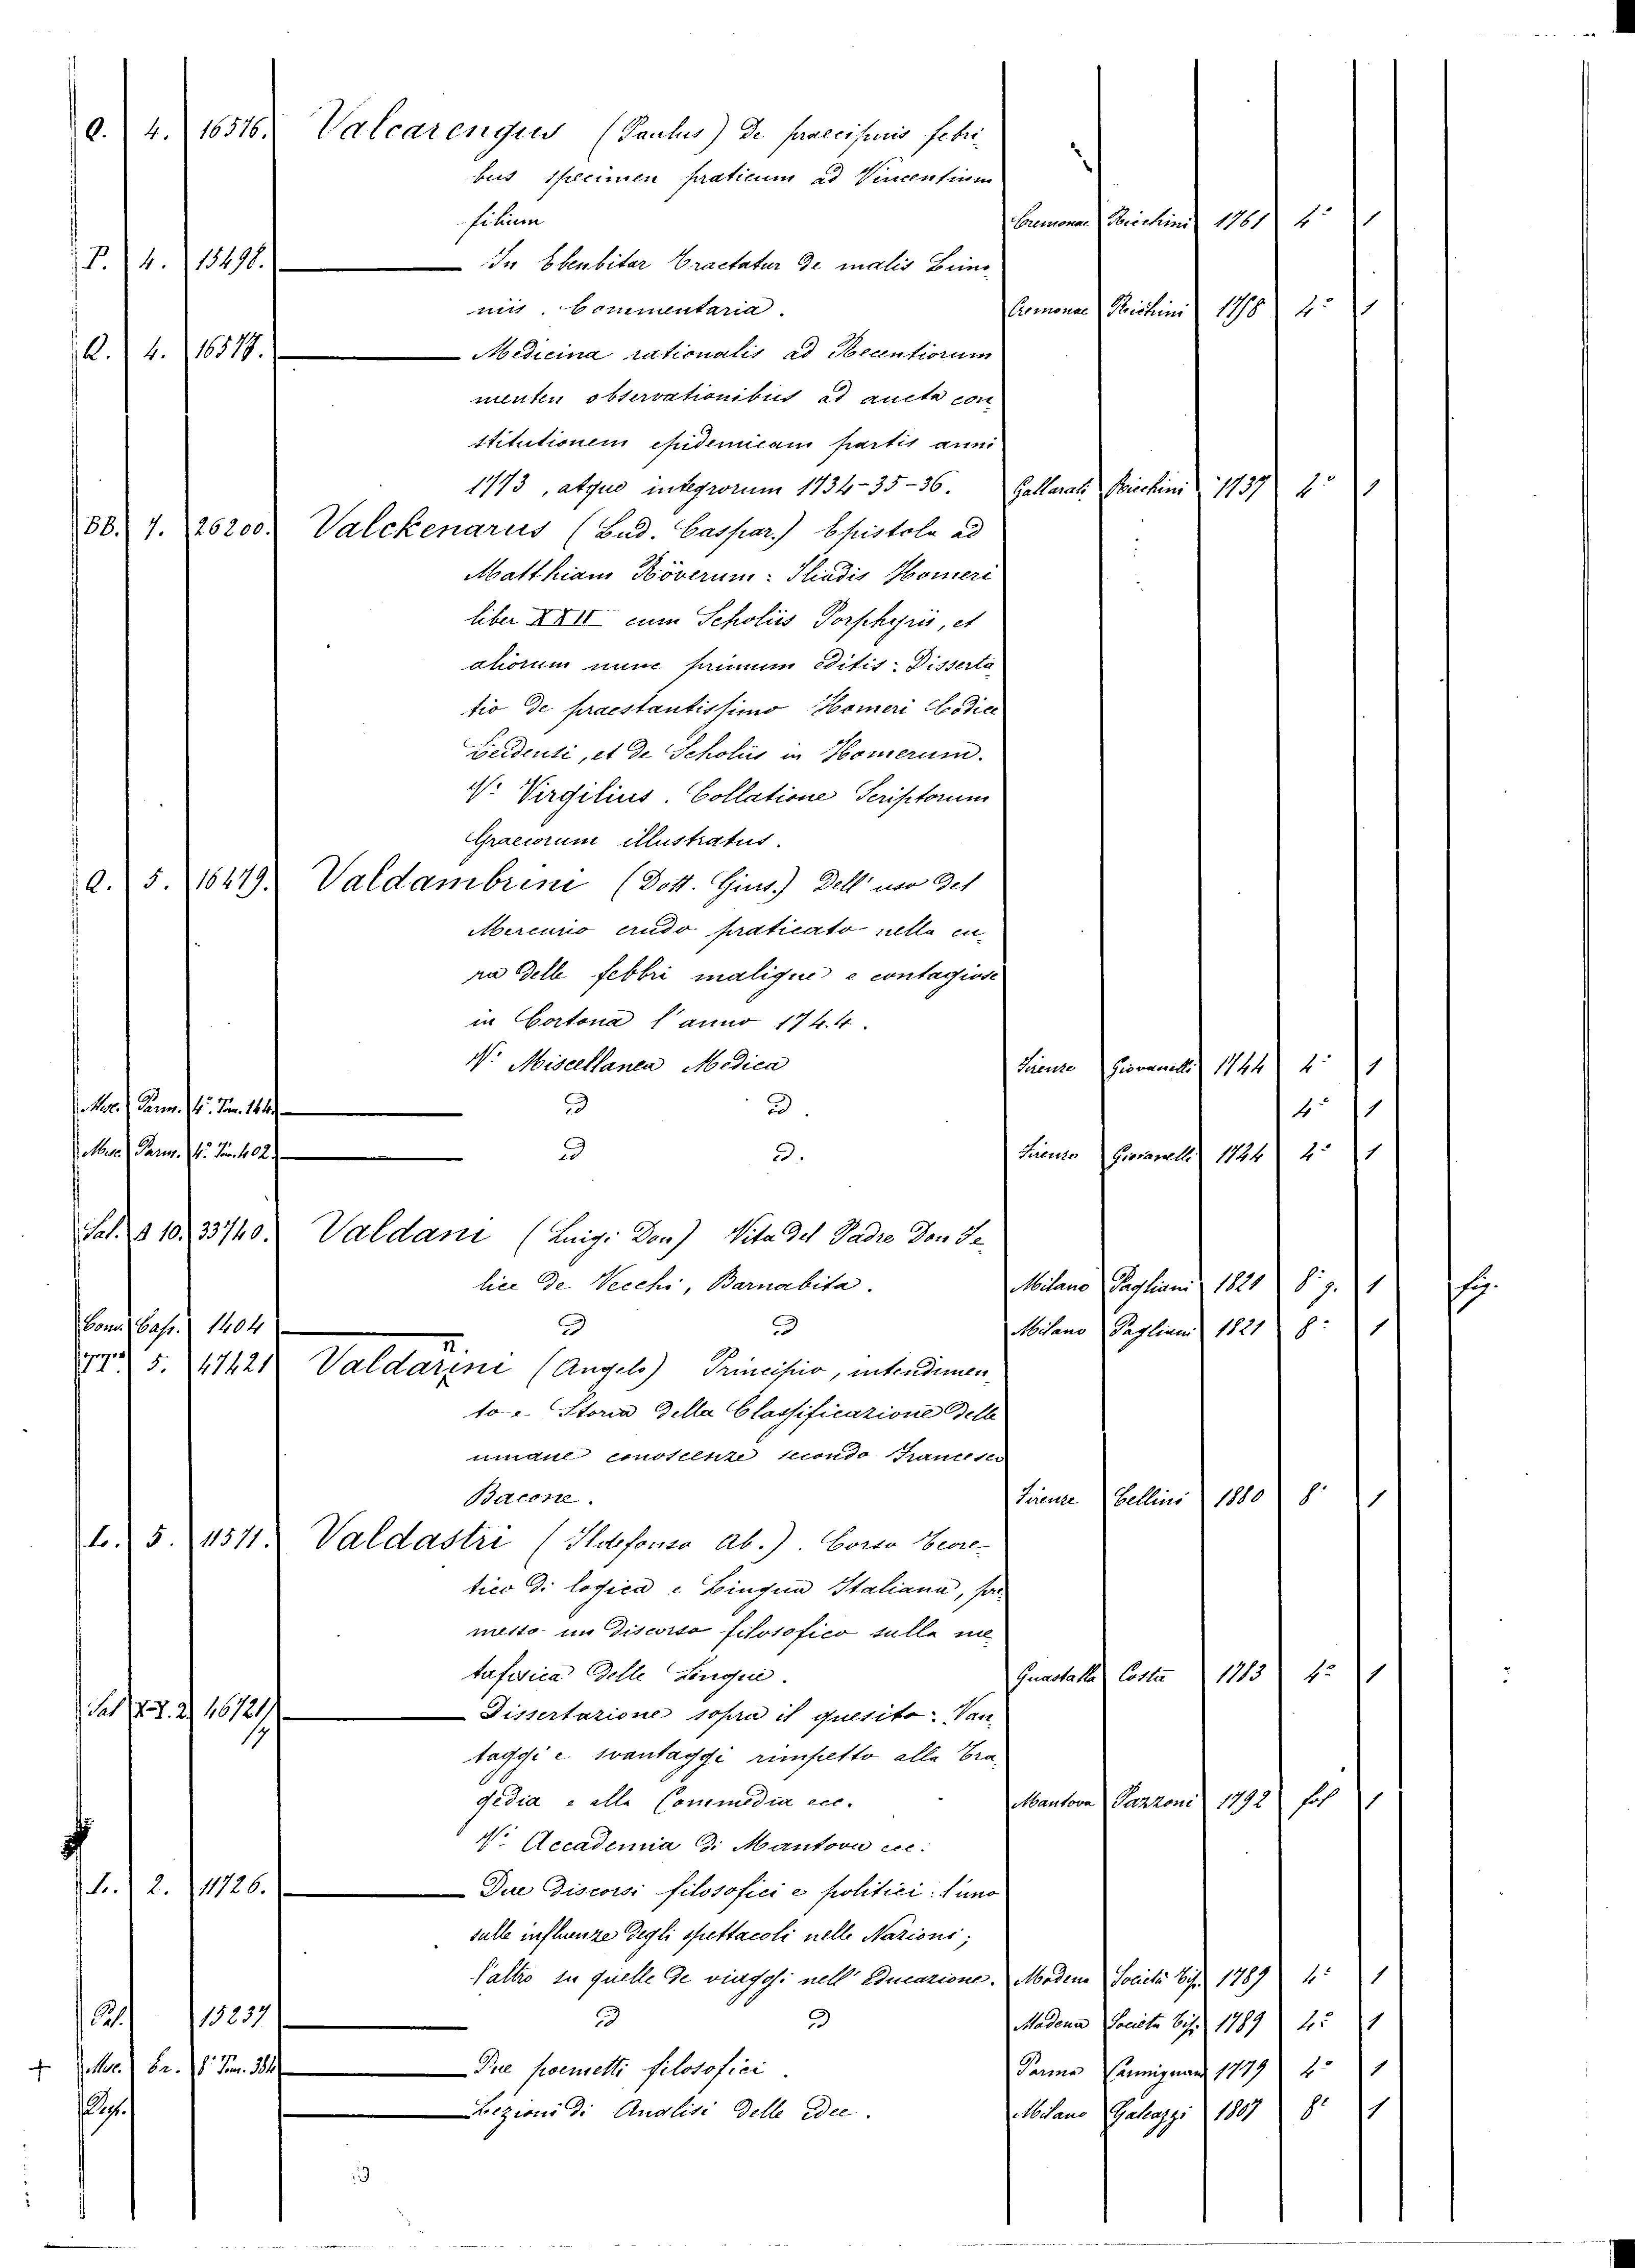 Q. 4. 16576. Valcarengus (Paulus) de praecipuis febri-
bus specimen praticum ad Vincentium
filium Cremonae Ricchini 1761 4º 1
P. 4. 15498. In Ebenbitar Tractatur de malis Limo-
niis. Commentaria. Cremonae Richini 1758 4º 1
Q. 4. 16577. Medicina rationalis ad Recentiorum
menten observationibus ad aucta con
stitutionem epidemicam partis anni
1773, atque integrorum 1734-35-36. Gallarati Ricchini 1737 4º 1
BB. 7. 26200. Valckenarus (Lud. Caspar.) Epistola ad
Matthiam Röverum: Iliadis Homeri
liber XXII cum Scholiis Porphyrii, et
aliorum nunc primum editis: Disserta
tio de praestantissimo Homeri Codice
Leidensi, et de Scholiis in Homerum.
V. Virgilius. Collatione Scriptorum
Graecorum illustratus.
Q. 5. 16479. Valdambrini (Dott. Gius.) Dell'uso del
Mercurio crudo praticato nella cu-
ra delle febbri maligne e contagiose
in Cortona l'anno 1744.
V. Miscellanea Medica Firenze Giovanelli 1744 4º 1
Misc. Parm. 4º Tom. 144. D D. 4º 1
Misc. Parm. 4º Tom. 402. D D. Firenze Giovanelli 1744 4º 1
Sal. 10. 33740. Valdani (Luigi Don) Vita del Padre Don Fe-
lice De Vecchi, Barnabita. Milano Pagliani 1821 8º g. 1 fig.
Conv. Capp. 1404 D D Milano Pagliani 1821 8º 1
5. 47421 Valdarini (Angelo) Principio, intendimen-
to e Storia della Classificazione delle
umane conoscenze secondo Francesco
Bacone. Firenze Cellini 1880 8º 1
L. 5. 11571. Valdastri (Ildefonso Ab.). Corso teore-
tico di logica e Lingua Italiana, pre
messo un discorso filosofico sulla me
tafisica delle Lingue. Guastalla Costa 1783 4º 1
Sal 2. 46721/7 Dissertazione sopra il quesito: Van
taggi e svantaggi rimpetto alla Tra
gedia e alla Commedia ecc. Mantova Pazzoni 1792 fol 1
V. Accademia di Mantova ecc.
L. 2. 11726. Due discorsi filosofici e politici: l'uno
sulle influenze degli spettacoli nelle Nazioni;
l'altro su quelle de viaggi nell'educazione. Modena Società Tip. 1789 4º 1
Pal. 15237 D D Modena Società Tip. 1789 4º 1
+ Misc. Er. 8º Tom. 384 Due poemetti filosofici. Parma Carmignani 1779 4º 1
Lezioni di Analisi delle idee. Milano Galeazzi 1807 8º 1